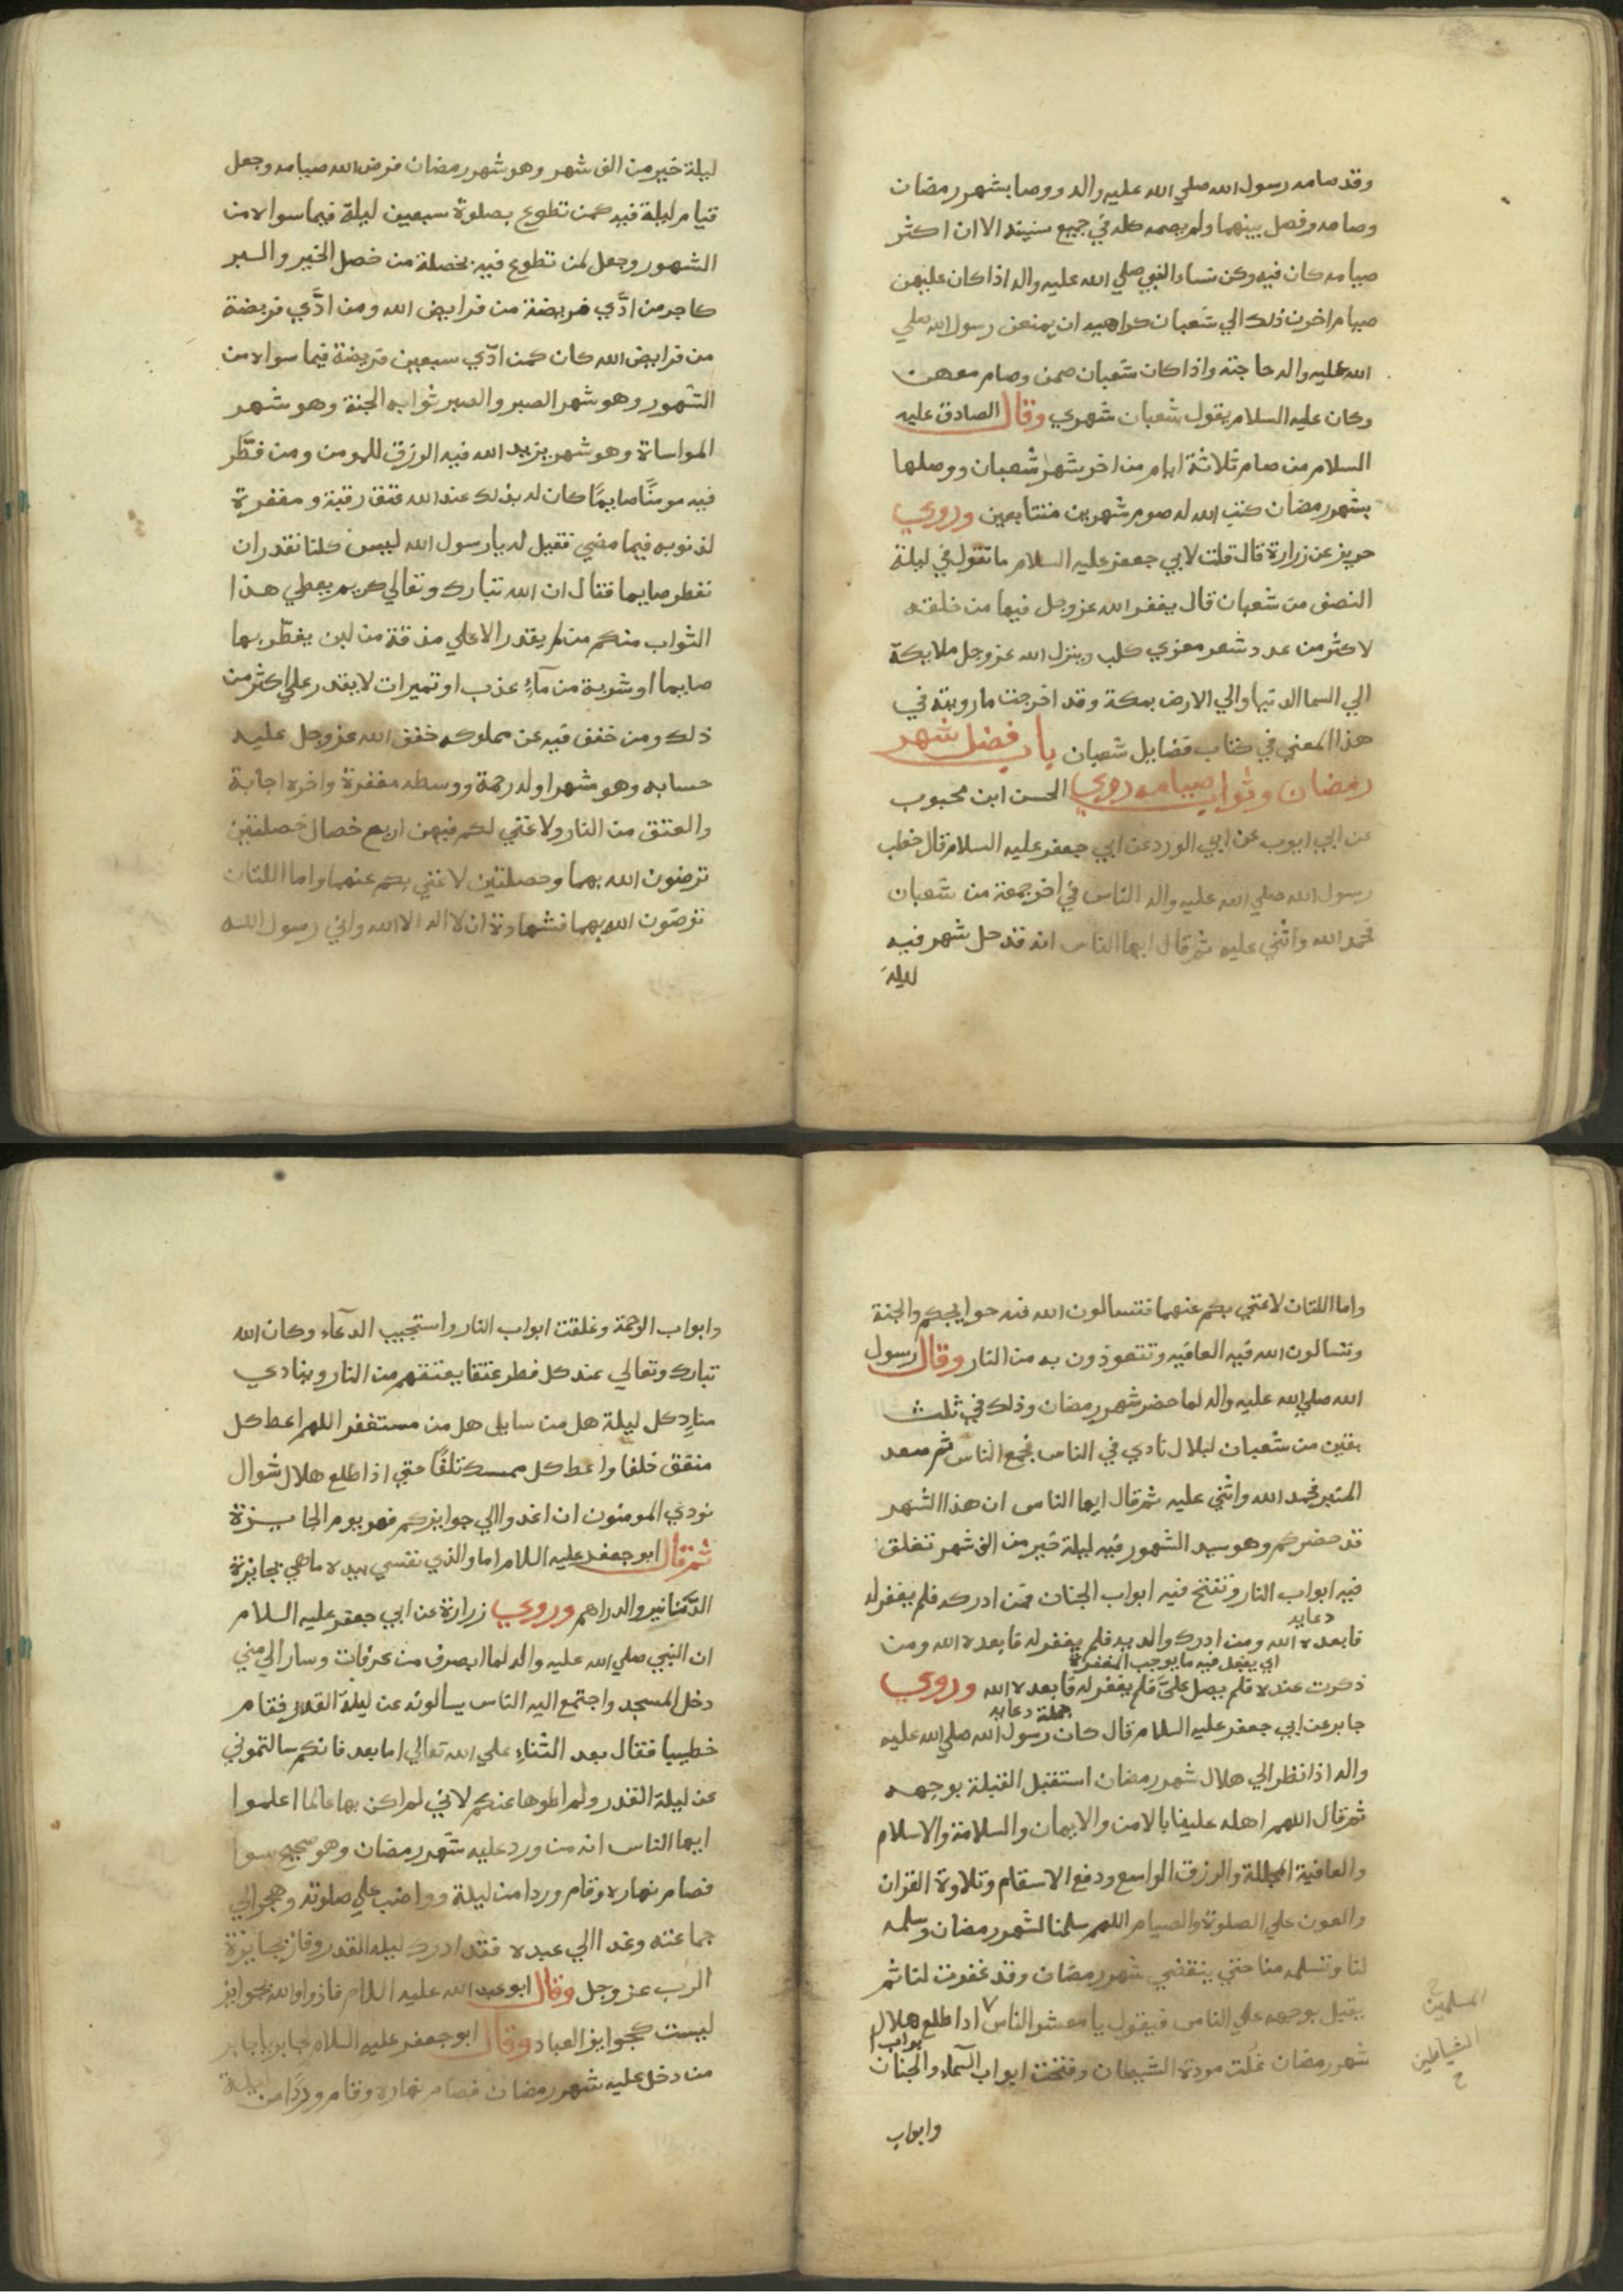 وقد صامه رسول الله صلي الله عليه واله ووصا بشهر رمضان
وصامه وفصل بينهما ولم يصمه كله في جميع سنينه الا ان اكثر
صيامه كان فيه وكن نساء النبي صلي الله عليه واله اذا كان عليهن
صيام اخرن ذلك الي شعبان كراهيه ان يمنعن رسول الله صلي
الله عليه واله حاجته واذا كان شعبان صمن وصام معهن
وكان عليه السلام يقول شعبان شهري وقال الصادق عليه
السلام من صام ثلاثة ايام من اخر شهر شعبان ووصلها
بشهر رمضان كتب الله له صوم شهرين متتابعين وروي
حريز عن زرارة قال قلت لابي جعفر عليه السلام ما تقول في ليلة
النصف من شعبان قال يغفر الله عز وجل فيها من خلقه
لاكثر من عدد شعر معزي كلب وينزل الله عز وجل ملايكة
الي السما الدنيا والي الارض بمكة وقد اخرجت ما رويته في
هذا المعني في كتاب فضايل شعبان باب فضل شهر
رمضان وثواب صيامه روي الحسن ابن محبوب
عن ابي ايوب عن ابي الورد عن ابي جعفر عليه السلام قال خطب
رسول الله صلي الله عليه واله الناس في اخر جمعة من شعبان
فحمد الله واثني عليه ثم قال ايها الناس انه قد حل شهر فيه
ليلة
ليلة خير من الف شهر وهو شهر رمضان فرض الله صيامه وجعل
قيام ليلة فيه كمن تطوع بصلوة سبعين ليلة فيما سواه من
الشهور وجعل لمن تطوع فيه بخصلة من خصل الخير والبر
كاجر من ادّي فريضة من فرايض الله ومن ادّي فريضة
من فرايض الله كان كمن ادّي سبعين فريضة فيما سواه من
الشهور وهو شهر الصبر والصبر ثوابه الجنة وهو شهر
المواساة وهو شهر يزيد الله فيه الرزق للمومن ومن فطّر
فيه مومنًا صايمًا كان له بذلك عند الله عتق رقبة ومغفرة
لذنوبه فيما مضي فقيل له يا رسول الله ليس كلنا نقدر ان
نفطر صايما فقال ان الله تبارك وتعالي كريم يعطي هذا
الثواب منكم من لم يقدر الا علي مذقة من لبن يفطّر بها
صايما او شربة من مآءٍ عذب او تميرات لا يقدر علي اكثر من
ذلك ومن خفف فيه عن مملوكه خفف الله عز وجل عليه
حسابه وهو شهر اوله رحمة ووسطه مغفرة واخره اجابة
والعتق من النار ولا غني لكم فيهن اربع خصال خصلتين
ترضون الله بهما وخصلتين لا غني بكم عنهما واما اللتان
ترضون الله بهما فشهادة ان لا اله الا الله واني رسول الله
واما اللتان لا غني بكم عنهما فتسالون الله فيه حوايجكم والجنة
وتسالون الله فيه العافيه وتتعوذون به من النار وقال رسول
الله صلي الله عليه واله لما حضر شهر رمضان وذلك في ثلث
بقين من شعبان لبلال نادي في الناس فجمع الناس ثم صعد
المنبر فحمد الله واثني عليه ثم قال ايها الناس ان هذا الشهر
قد حضركم وهو سيد الشهور فيه ليلة خير من الف شهر تغلق
فيه ابواب النار وتفتح فيه ابواب الجنان فمن ادركه فلم يغفر له
دعايه
فابعده الله ومن ادرك والديه فلم يغفر له فابعده الله ومن
اي يفعل فيه ما يوجب المغفرة
ذكرت عنده فلم يصل عليّ فلم يغفر له فابعده الله وروي
جملة دعايه
جابر عن ابي جعفر عليه السلام قال كان رسول الله صلي الله عليه
واله اذا نظر الي هلال شهر رمضان استقبل القبلة بوجهه
ثم قال اللهم اهله علينا بالامن والايمان والسلامة والاسلام
والعافية المجللة والرزق الواسع ودفع الاسقام وتلاوة القران
والعون علي الصلوة والصيام اللهم سلمنا لشهر رمضان وسلمه
لنا وتسلمه منا حتي ينقضي شهر رمضان وقد غفرت لنا ثم
يقبل بوجهه علي الناس فيقول يا معشر الناس اذا طلع هلال
المسلمين
ابواب
شهر رمضان غلت مودة الشيطان وفتحت ابواب السّماء والجنان
الشياطين
ح
وابواب
وابواب الرحمة وغلقت ابواب النار واستجيب الدعآء وكان الله
تبارك وتعالي عند كل فطر عتقا يعتقهم من النار وينادي
منادٍ كل ليلة هل من سايل هل من مستغفر اللهم اعط كل
منفق خلفا واعط كل ممسك تلفًا حتي اذا طلع هلال شوال
نودي المومنون ان اغدوا الي جوايزكم فهو يوم الجايزة
ثم قال ابو جعفر عليه السلام اما والذي نفسي بيده ما هي بجايزة
الدّنانير والدراهم وروي زرارة عن ابي جعفر عليه السلام
ان النبي صلي الله عليه واله لما انصرف من عرفات وسار الي مني
دخل المسجد واجتمع اليه الناس يسالونه عن ليلة القدر فقام
خطيبا فقال بعد الثناء علي الله تعالي اما بعد فانكم سالتموني
عن ليلة القدر ولم اطوها عنكم لاني لم اكن بها عالما اعلموا
ايها الناس انه من ورد عليه شهر رمضان وهو صحيح سوا
فصام نهاره وقام وردا من ليلة وواضب علي صلوته وهجر الي
جماعته وغدا الي عيده فقد ادرك ليلة القدر وفاز بجايزة
الرب عز وجل وقال ابو عبد الله عليه السلام فازوا والله بجوايز
ليست كجوايز العباد وقال ابو جعفر عليه السلام لجابر يا جابر
من دخل عليه شهر رمضان فصام نهاره وقام وردًا من ليلة